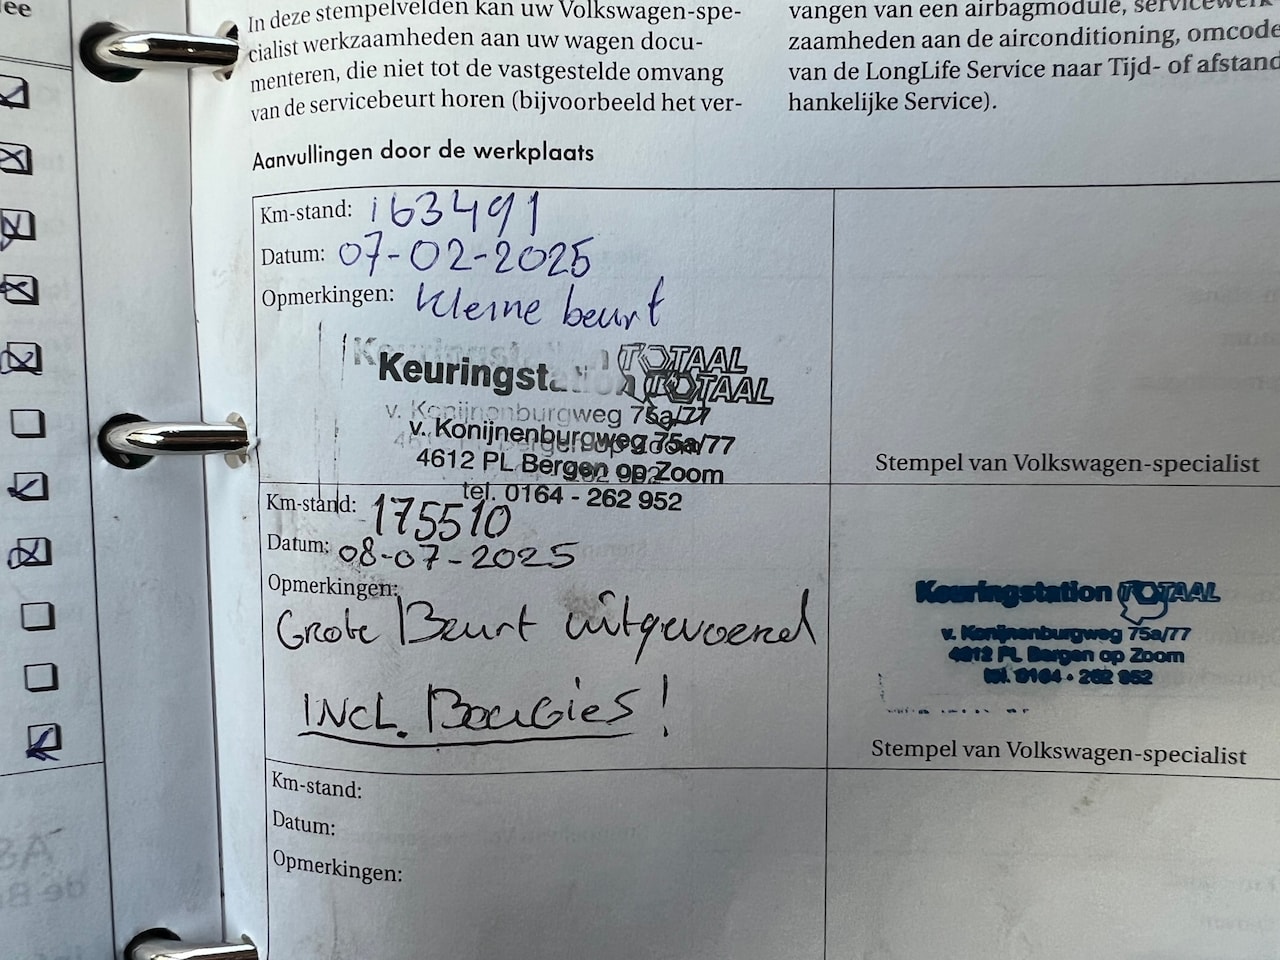 In deze stempelvelden kan uw Volkswagen-spe-
cialist werkzaamheden aan uw wagen docu-
menteren, die niet tot de vastgestelde omvang
van de servicebeurt horen (bijvoorbeeld het ver-
vangen van een airbagmodule, servicewerk-
zaamheden aan de airconditioning, omcode
van de LongLife Service naar Tijd- of afstand
hankelijke Service).
Aanvullingen door de werkplaats
Km-stand: 163491
Datum: 07-02-2025
Opmerkingen: Kleine beurt
Keuringstation TOTAAL
v. Konijnenburgweg 75a/77
4612 PL Bergen op Zoom
tel. 0164 - 262 952
Stempel van Volkswagen-specialist
Km-stand: 175510
Datum: 08-07-2025
Opmerkingen:
Grote Beurt uitgevoerd
INCL. BOUGIES!
Keuringstation TOTAAL
v. Konijnenburgweg 75a/77
4612 PL Bergen op Zoom
tel. 0164 - 262 952
Stempel van Volkswagen-specialist
Km-stand:
Datum:
Opmerkingen: